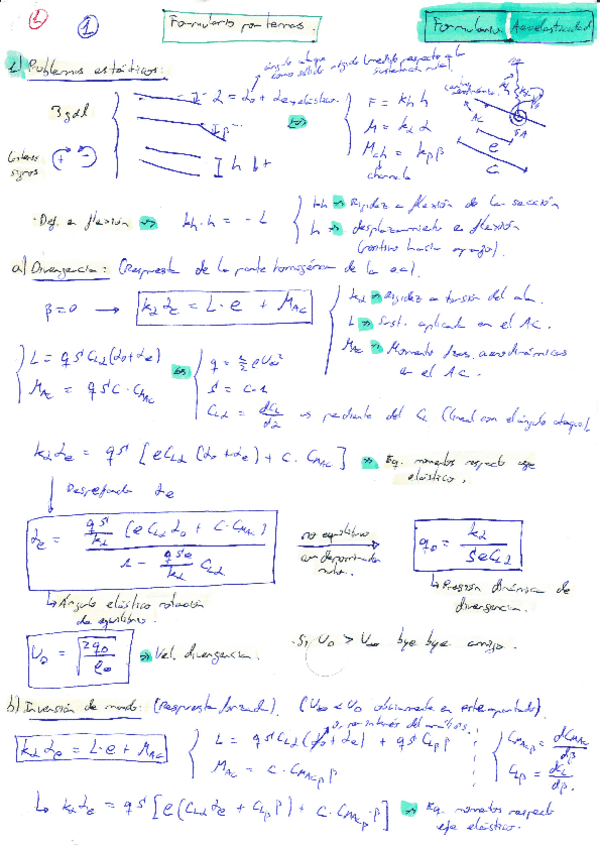 1 1 Formulario por temas. Formulario Aeroelasticidad
1) Problemas estáticos:
ángulo ataque como sólido rígido (medido respecto a la sustentación nula)
3 gdl
α = α0 + αe → elástico.
β
h b +
Criterio signos + -
F = kh h
M = kα α
Mch = kβ β
charnela
centro aerodinámico
AC
EA
e
c
· Def. a flexión → kh·h = -L
kh → Rigidez a flexión de la sección
h → desplazamiento a flexión
(positivo hacia abajo).
a) Divergencia: (Respuesta de la parte homogénea de la ec).
β=0 → kα αe = L·e + MAC
kα → Rigidez a torsión del ala.
L → Sust. aplicada en el AC.
MAC → Momento fzas. aerodinámicas
en el AC.
L = q S CLα (α0+αe)
MAC = q S c · CMAC
q = ½ ρ U∞²
S = c·1
CLα = dCL/dα → pendiente del CL (lineal con el ángulo ataque).
kα αe = q S [e CLα (α0+αe) + c · CMAC] → Eq. momentos respecto eje
elástico.
Despejando αe
αe = qS/kα (e CLα α0 + c · CMAC) / 1 - qSe/kα CLα
no equilibrio
con denominador
nulo.
qD = kα / S e CLα
↳ Ángulo elástico rotación
de equilibrio.
↳ Presión dinámica de
divergencia.
UD = √(2qD/ρ∞) → Vel. divergencia.
· Si UD > U∞ bye bye amigo.
b) Inversión de mando: (Respuesta forzada). (U∞ < UD obviamente en este apartado).
0, no interés del análisis.
kα αe = L·e + MAC
L = q S CLα (α0 + αe) + q S CLβ β
MAC = c · CMACβ β
CMACβ = dCMAC/dβ
CLβ = dCL/dβ.
↳ kα αe = q S [e (CLα αe + CLβ β) + c · CMACβ · β] → Eq. momentos respecto
eje elástico.